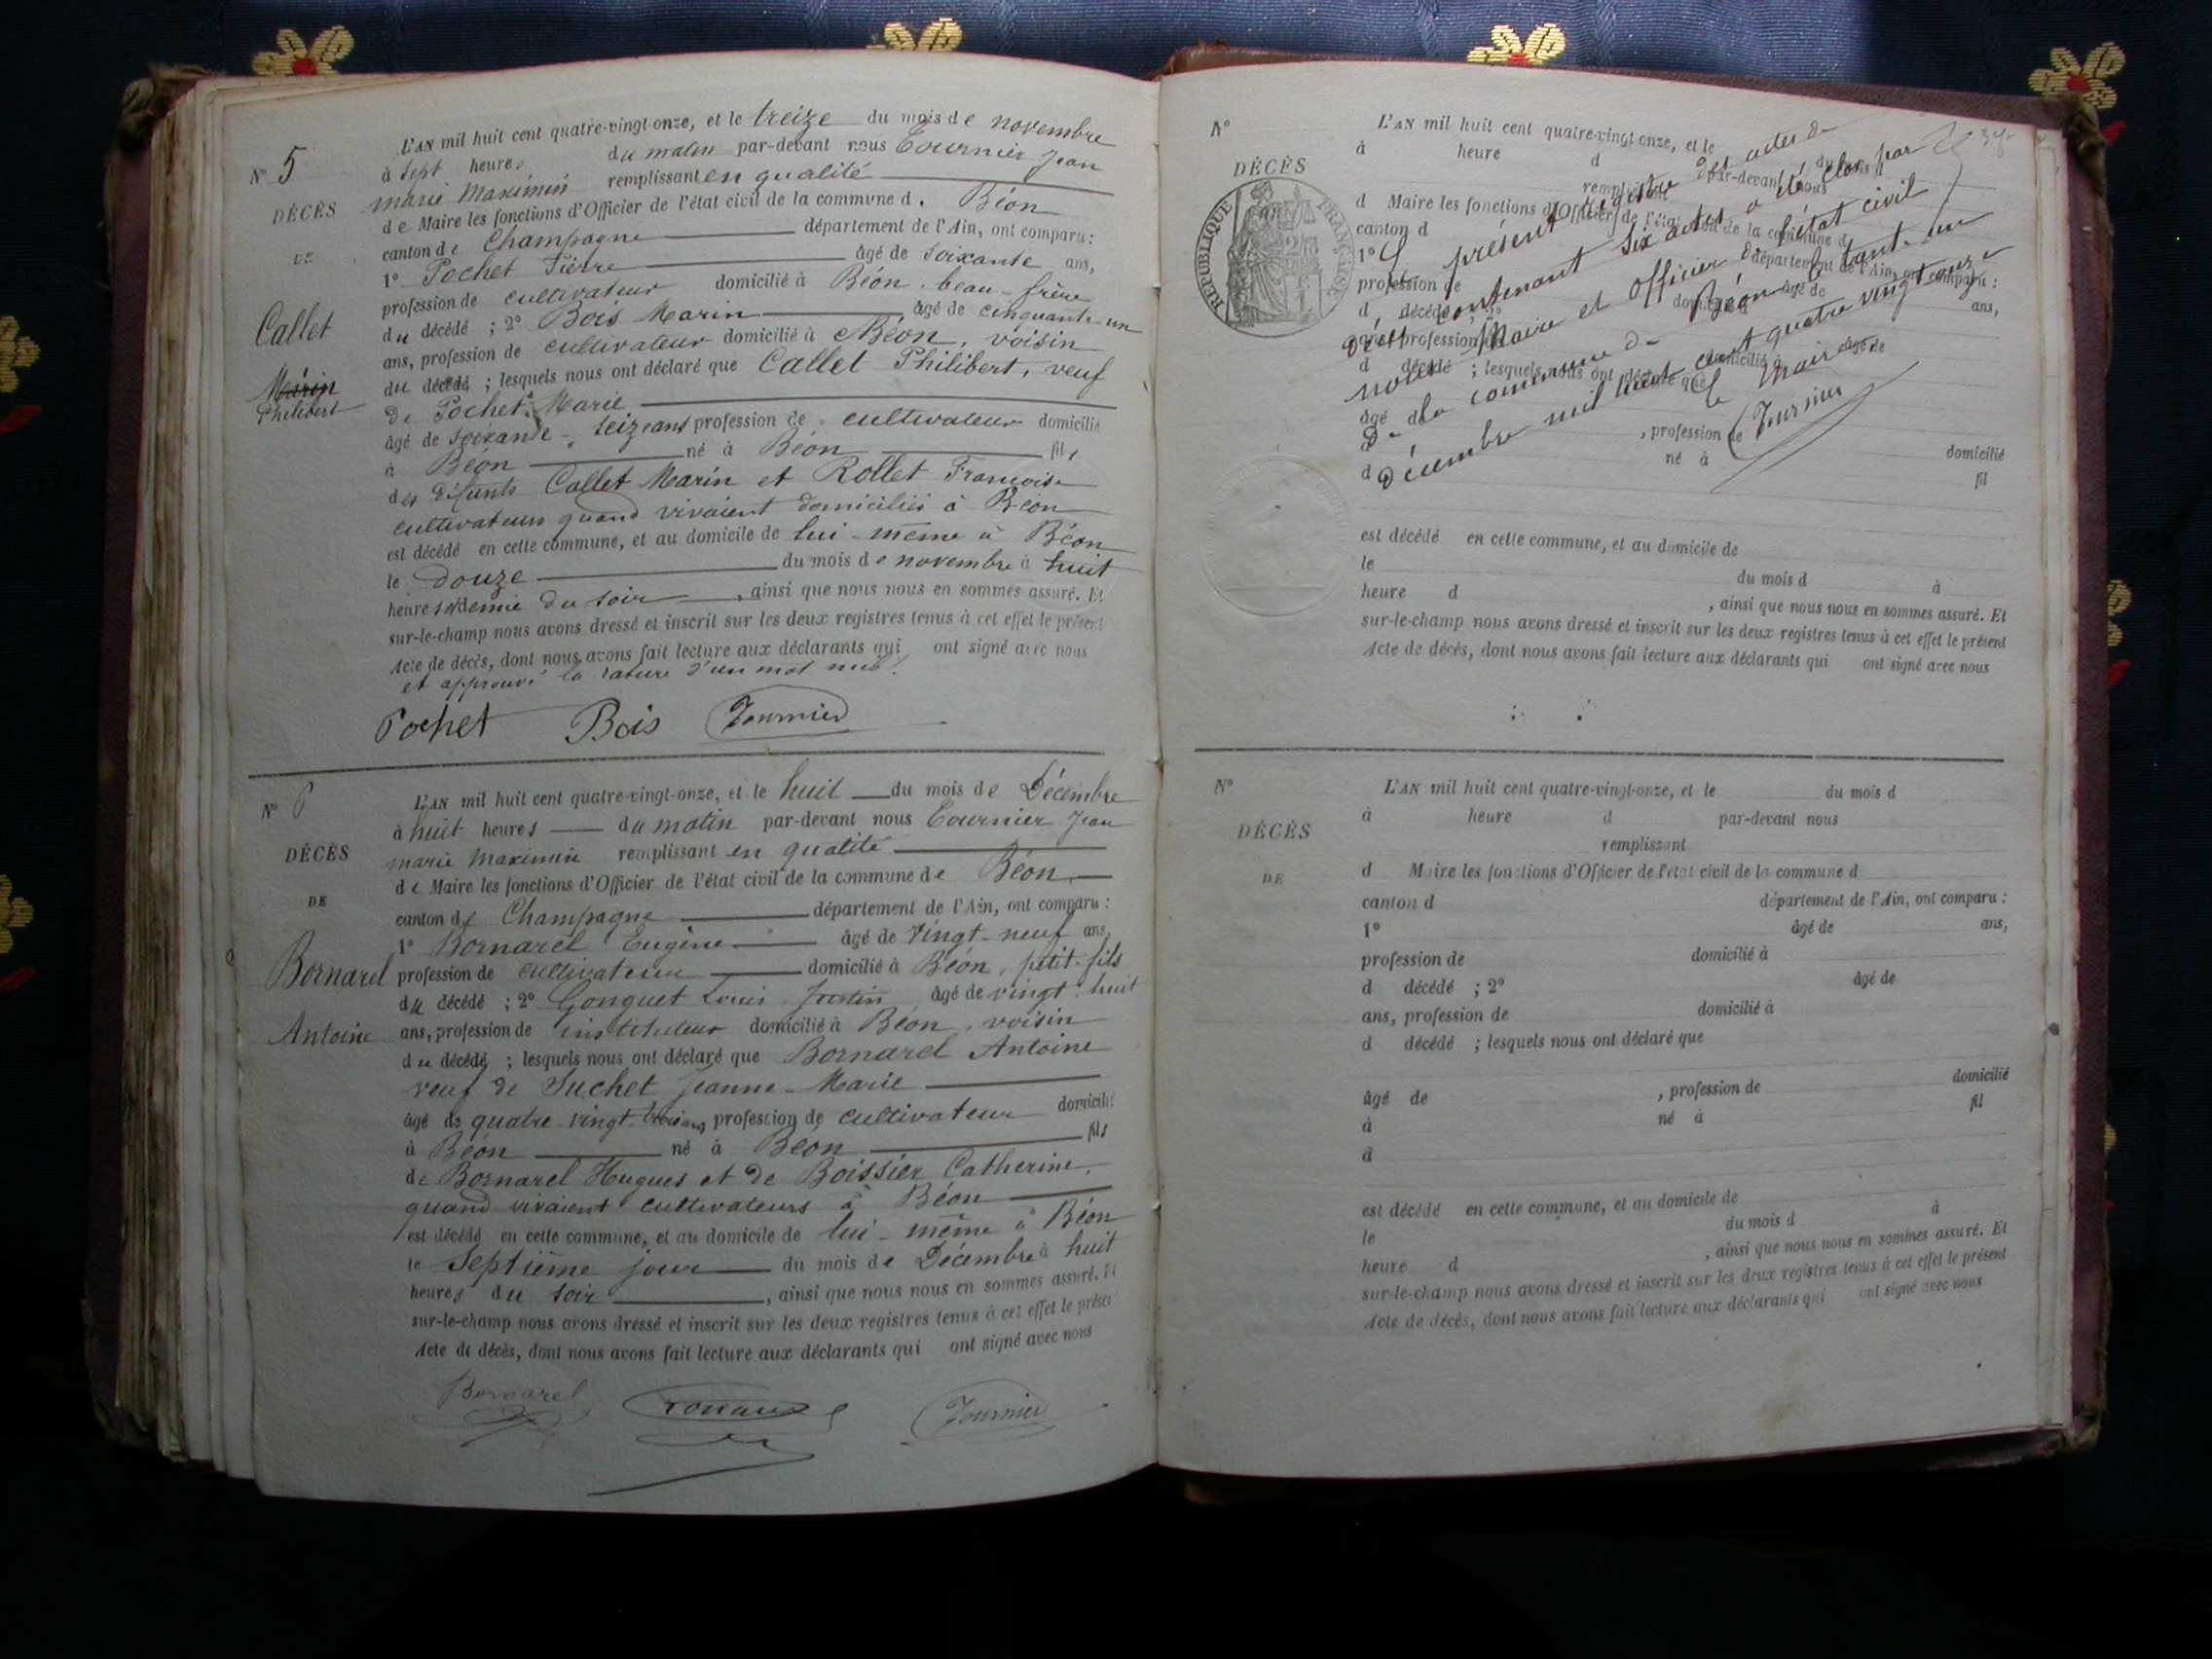 L'AN mil huit cent quatre-vingt-onze, et le treize du mois de novembre
N° 5
à sept heures du matin par-devant nous Tournier Jean
marie Maximin remplissant en qualité
DÉCÈS
de Maire les fonctions d'Officier de l'état civil de la commune d. Béon
canton de Champagne département de l'Ain, ont comparu :
DE
1° Pochet Pierre âgé de soixante ans,
profession de cultivateur domicilié à Béon, beau-frère
Callet
du décédé ; 2° Bois Marin âgé de cinquante-un
ans, profession de cultivateur domicilié à Béon, voisin
Marin
du décédé ; lesquels nous ont déclaré que Callet Philibert, veuf
Philibert
de Pochet Marie
âgé de soixante-seize ans profession de cultivateur domicilié
à Béon né à Béon fils
des défunts Callet Marin et Rollet Françoise
cultivateurs quand vivaient domiciliés à Béon
est décédé en cette commune, et au domicile de lui-même à Béon
le douze du mois de novembre à huit
heures et demie du soir, ainsi que nous nous en sommes assuré. Et
sur-le-champ nous avons dressé et inscrit sur les deux registres tenus à cet effet le présent
Acte de décès, dont nous avons fait lecture aux déclarants qui ont signé avec nous
et approuvé la rature d'un mot nul.
Pochet Bois Tournier
N° 6
L'AN mil huit cent quatre-vingt-onze, et le huit du mois de Décembre
à huit heures du matin par-devant nous Tournier Jean
DÉCÈS
marie Maximin remplissant en qualité
de Maire les fonctions d'Officier de l'état civil de la commune de Béon
DE
canton de Champagne département de l'Ain, ont comparu :
1° Bornarel Eugène âgé de vingt-neuf ans,
Bornarel
profession de cultivateur domicilié à Béon, petit-fils
du décédé ; 2° Gonguet Louis Justin âgé de vingt-huit
Antoine
ans, profession de instituteur domicilié à Béon, voisin
du décédé ; lesquels nous ont déclaré que Bornarel Antoine
veuf de Suchet Jeanne-Marie
âgé de quatre vingt trois ans, profession de cultivateur domicilié
à Béon né à Béon fils
de Bornarel Hugues et de Boissier Catherine,
quand vivaient cultivateurs à Béon
est décédé en cette commune, et au domicile de lui-même à Béon
le septième jour du mois de Décembre à huit
heures du soir, ainsi que nous nous en sommes assuré. Et
sur-le-champ nous avons dressé et inscrit sur les deux registres tenus à cet effet le présent
Acte de décès, dont nous avons fait lecture aux déclarants qui ont signé avec nous
Bornarel Tournier
N°
L'AN mil huit cent quatre-vingt-onze, et le du mois d
à heure d par-devant nous
DÉCÈS
remplissant
d Maire les fonctions d'Officier de l'état civil de la commune d
RÉPUBLIQUE FRANÇAISE
canton d département de l'Ain, ont comparu :
1° âgé de ans,
profession de domicilié à
d décédé ; 2° âgé de
ans, profession de domicilié à
d décédé ; lesquels nous ont déclaré que
âgé de , profession de domicilié
né à fil
d
Le présent registre des actes de
Décès contenant six actes a été clos par
nous Maire et Officier de l'état civil
de la commune de Béon le trente-un
Décembre mil huit cent quatre vingt onze
Le Maire
Tournier
est décédé en cette commune, et au domicile de
le du mois d à
heure d , ainsi que nous nous en sommes assuré. Et
sur-le-champ nous avons dressé et inscrit sur les deux registres tenus à cet effet le présent
Acte de décès, dont nous avons fait lecture aux déclarants qui ont signé avec nous
N°
L'AN mil huit cent quatre-vingt-onze, et le du mois d
à heure d par-devant nous
DÉCÈS
remplissant
DE
d Maire les fonctions d'Officier de l'état civil de la commune d
canton d département de l'Ain, ont comparu :
1° âgé de ans,
profession de domicilié à
d décédé ; 2° âgé de
ans, profession de domicilié à
d décédé ; lesquels nous ont déclaré que
âgé de , profession de domicilié
à né à fil
d
est décédé en cette commune, et au domicile de
le du mois d à
heure d , ainsi que nous nous en sommes assuré. Et
sur-le-champ nous avons dressé et inscrit sur les deux registres tenus à cet effet le présent
Acte de décès, dont nous avons fait lecture aux déclarants qui ont signé avec nous